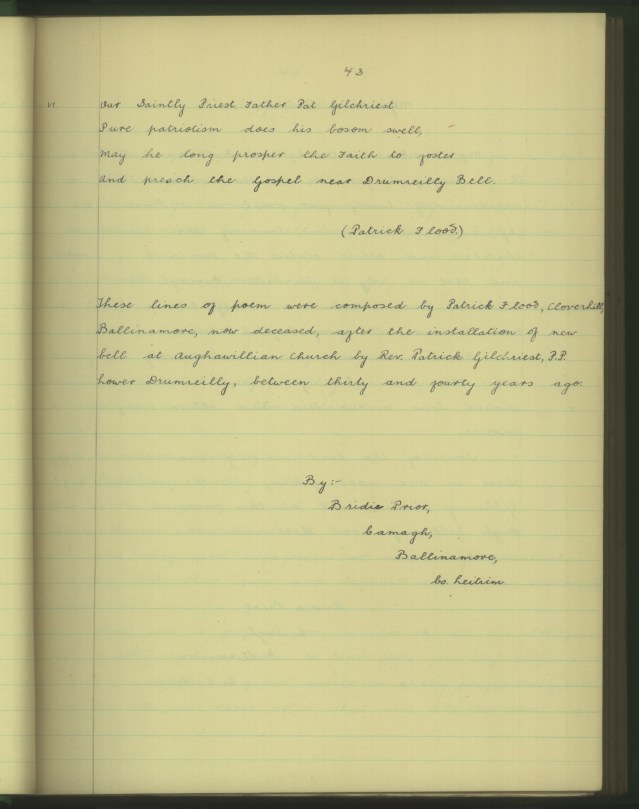 43
VI. Our Saintly Priest Father Pat Gilchriest
Pure patriotism does his bosom swell,
May he long prosper the Faith to foster
And preach the Gospel near Drumreilly Bell.
(Patrick Flood.)
These lines of poem were composed by Patrick Flood, Cloverhill,
Ballinamore, now deceased, after the installation of new
bell at Aughawillian Church by Rev. Patrick Gilchriest, P.P.
Lower Drumreilly, between thirty and fourty years ago.
By:-
Bridie Prior,
Camagh,
Ballinamore,
Co. Leitrim